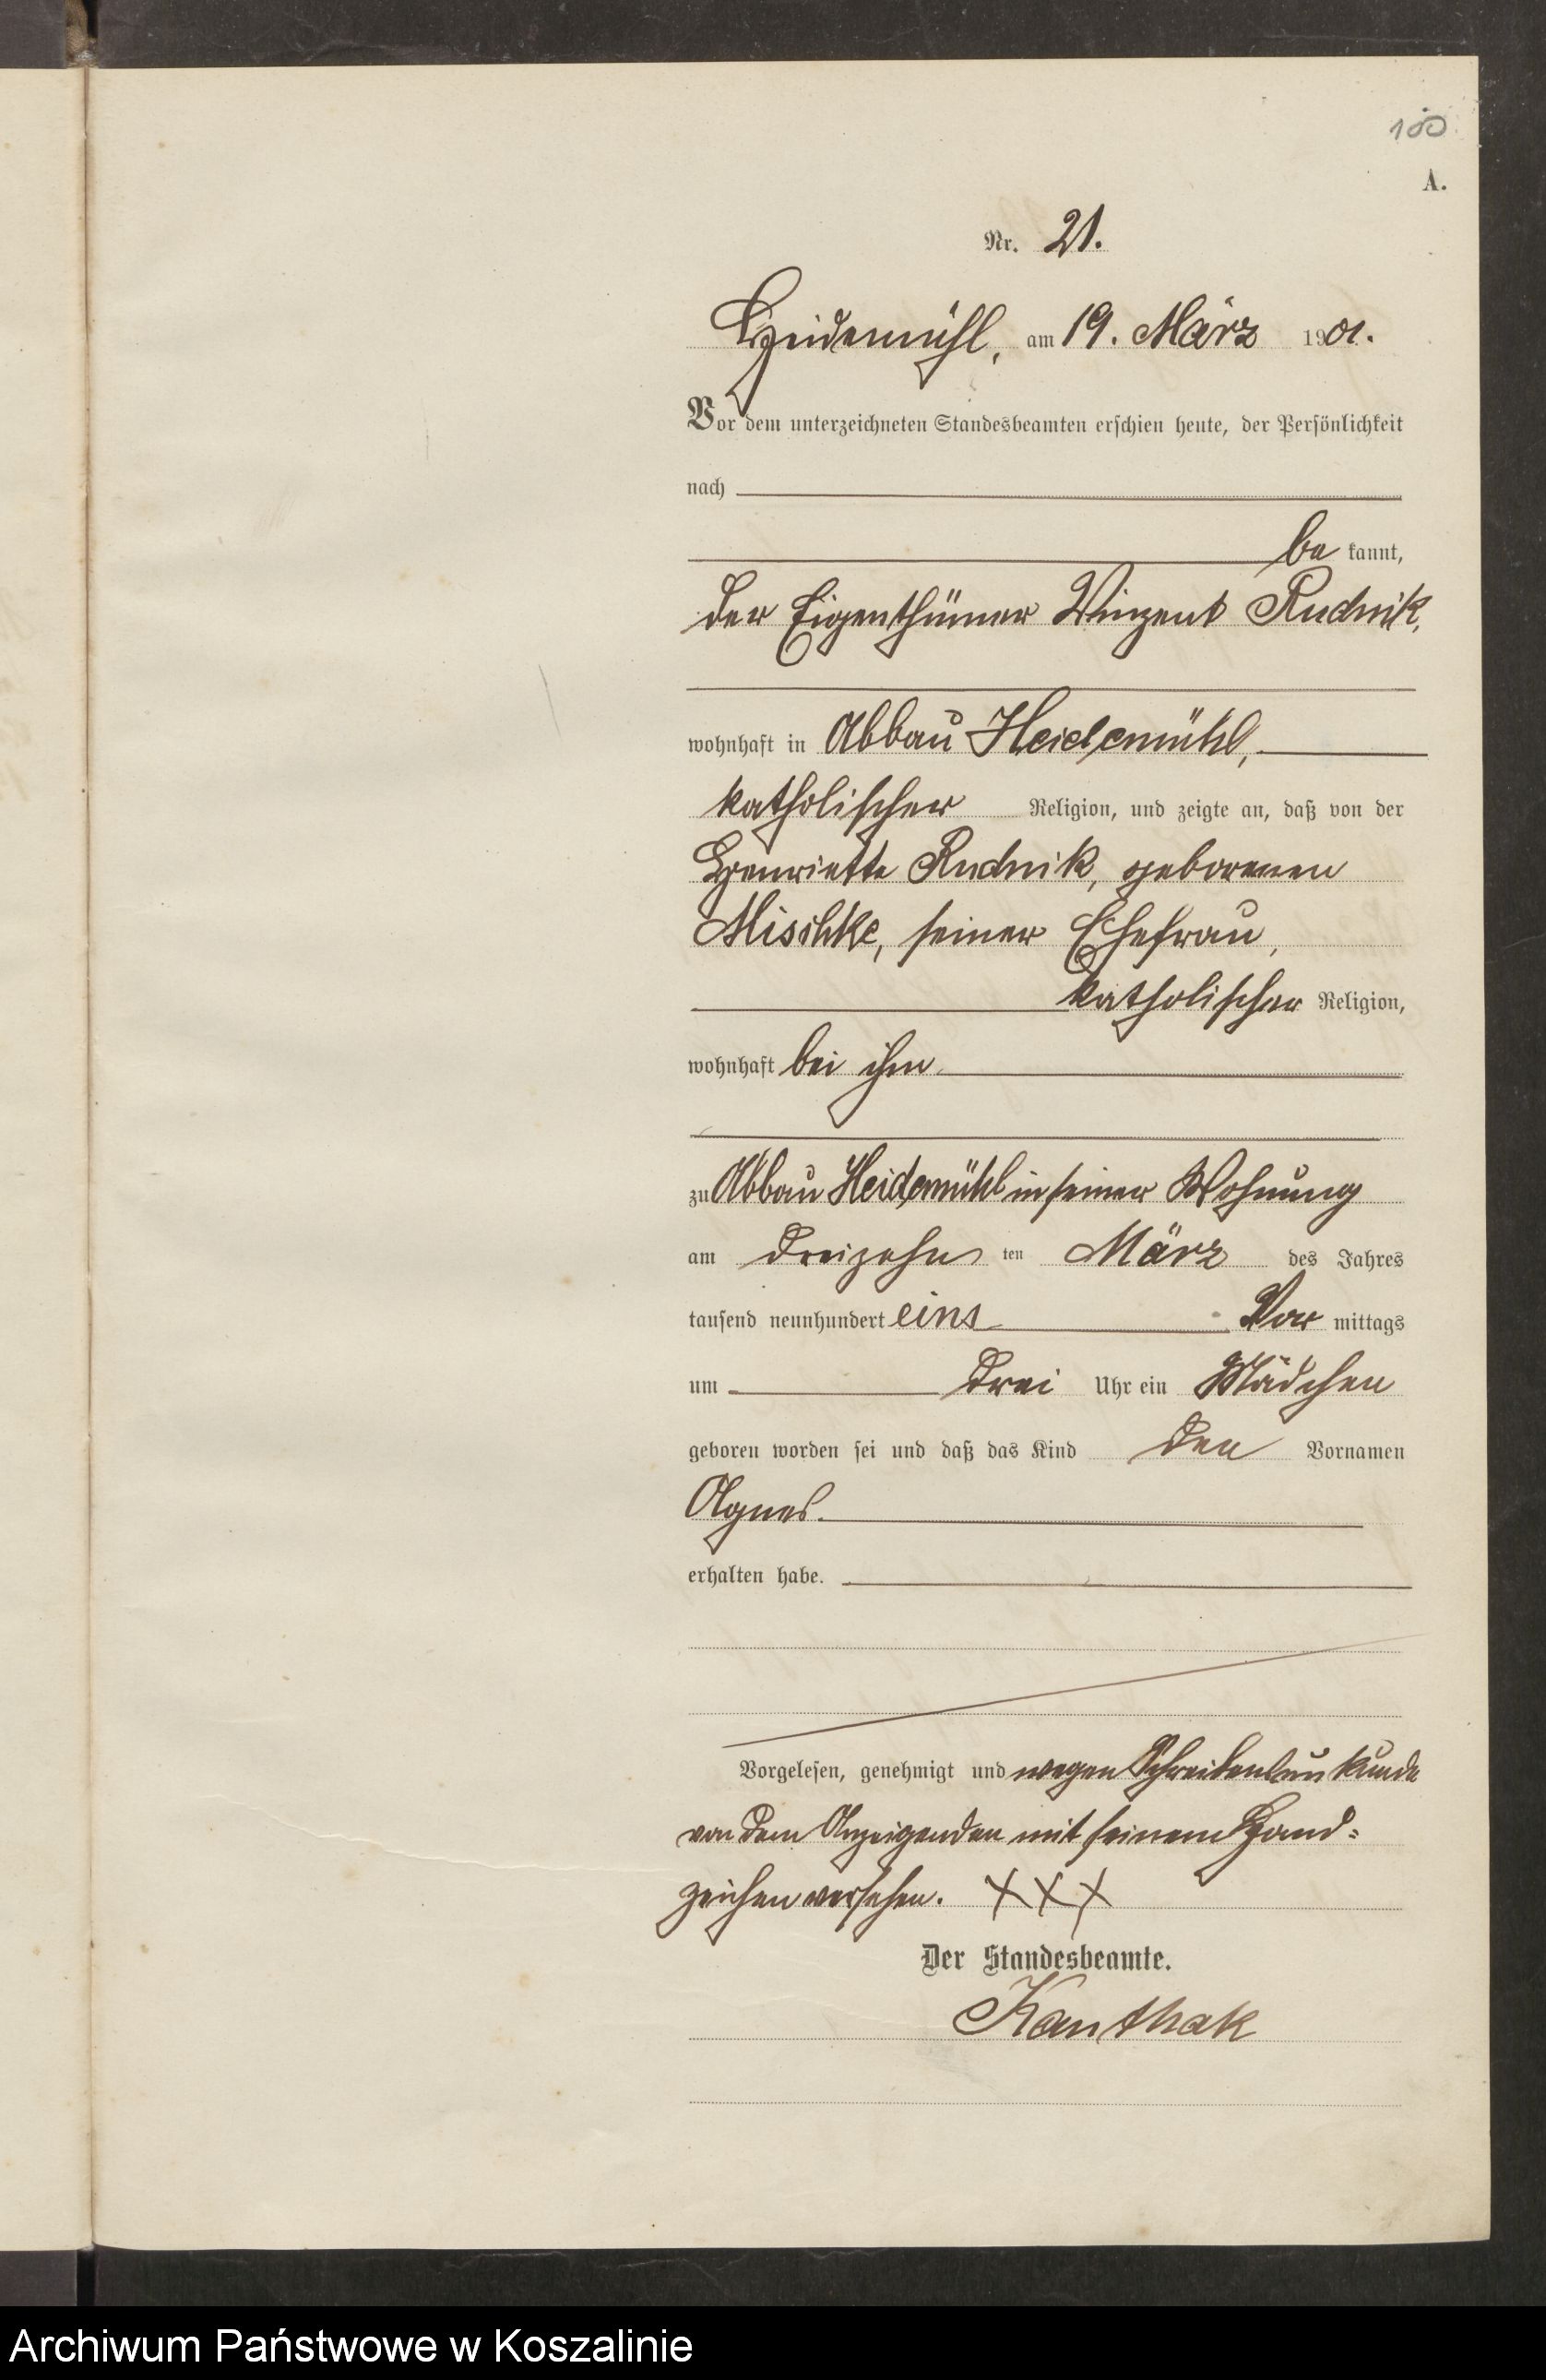 100
A.
Nr. 21.
Heidemühl, am 19. März 1901.
Vor dem unterzeichneten Standesbeamten erschien heute, der Persönlichkeit
nach
be kannt,
der Eigenthümer Vinzent Rudnik,
wohnhaft in Abbau Heidemühl,
katholischer Religion, und zeigte an, daß von der
Henriette Rudnik, geborenen
Mischke, seiner Ehefrau,
katholischer Religion,
wohnhaft bei ihm
zu Abbau Heidemühl in seiner Wohnung
am dreizehn ten März des Jahres
tausend neunhundert eins Vor mittags
um drei Uhr ein Mädchen
geboren worden sei und daß das Kind den Vornamen
Agnes.
erhalten habe.
Vorgelesen, genehmigt und wegen Schreibensunkunde
von dem Anzeigenden mit seinem Hand=
zeichen versehen. XXX
Der Standesbeamte.
Kanthak
Archiwum Państwowe w Koszalinie